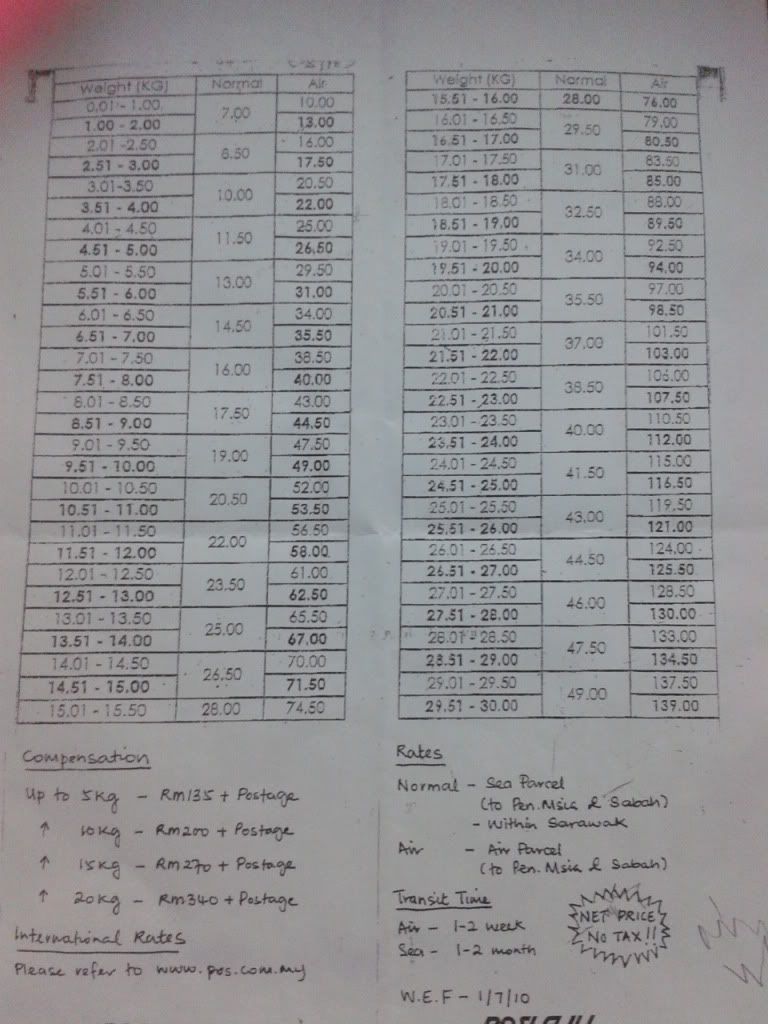 Weight (KG) Normal Air
0.01 - 1.00 7.00 10.00
1.00 - 2.00 13.00
2.01 -2.50 8.50 16.00
2.51 - 3.00 17.50
3.01-3.50 10.00 20.50
3.51 - 4.00 22.00
4.01 - 4.50 11.50 25.00
4.51 - 5.00 26.50
5.01 - 5.50 13.00 29.50
5.51 - 6.00 31.00
6.01 - 6.50 14.50 34.00
6.51 - 7.00 35.50
7.01 - 7.50 16.00 38.50
7.51 - 8.00 40.00
8.01 - 8.50 17.50 43.00
8.51 - 9.00 44.50
9.01 - 9.50 19.00 47.50
9.51 - 10.00 49.00
10.01 - 10.50 20.50 52.00
10.51 - 11.00 53.50
11.01 - 11.50 22.00 56.50
11.51 - 12.00 58.00
12.01 - 12.50 23.50 61.00
12.51 - 13.00 62.50
13.01 - 13.50 25.00 65.50
13.51 - 14.00 67.00
14.01 - 14.50 26.50 70.00
14.51 - 15.00 71.50
15.01 - 15.50 28.00 74.50
Compensation
Up to 5Kg - Rm135 + Postage
↑ 10Kg - Rm200 + Postage
↑ 15Kg - Rm270 + Postage
↑ 20Kg - Rm340 + Postage
International Rates
Please refer to www.pos.com.my
Weight (KG) Normal Air
15.51 - 16.00 28.00 76.00
16.01 - 16.50 29.50 79.00
16.51 - 17.00 80.50
17.01 - 17.50 31.00 83.50
17.51 - 18.00 85.00
18.01 - 18.50 32.50 88.00
18.51 - 19.00 89.50
19.01 - 19.50 34.00 92.50
19.51 - 20.00 94.00
20.01 - 20.50 35.50 97.00
20.51 - 21.00 98.50
21.01 - 21.50 37.00 101.50
21.51 - 22.00 103.00
22.01 - 22.50 38.50 106.00
22.51 - 23.00 107.50
23.01 - 23.50 40.00 110.50
23.51 - 24.00 112.00
24.01 - 24.50 41.50 115.00
24.51 - 25.00 116.50
25.01 - 25.50 43.00 119.50
25.51 - 26.00 121.00
26.01 - 26.50 44.50 124.00
26.51 - 27.00 125.50
27.01 - 27.50 46.00 128.50
27.51 - 28.00 130.00
28.01 - 28.50 47.50 133.00
28.51 - 29.00 134.50
29.01 - 29.50 49.00 137.50
29.51 - 30.00 139.00
Rates
Normal - Sea Parcel
(to Pen. Msia & Sabah)
- Within Sarawak
Air - Air Parcel
(to Pen. Msia & Sabah)
Transit Time
Air - 1-2 week
Sea - 1-2 month
NET PRICE
NO TAX!!
W.E.F - 1/7/10